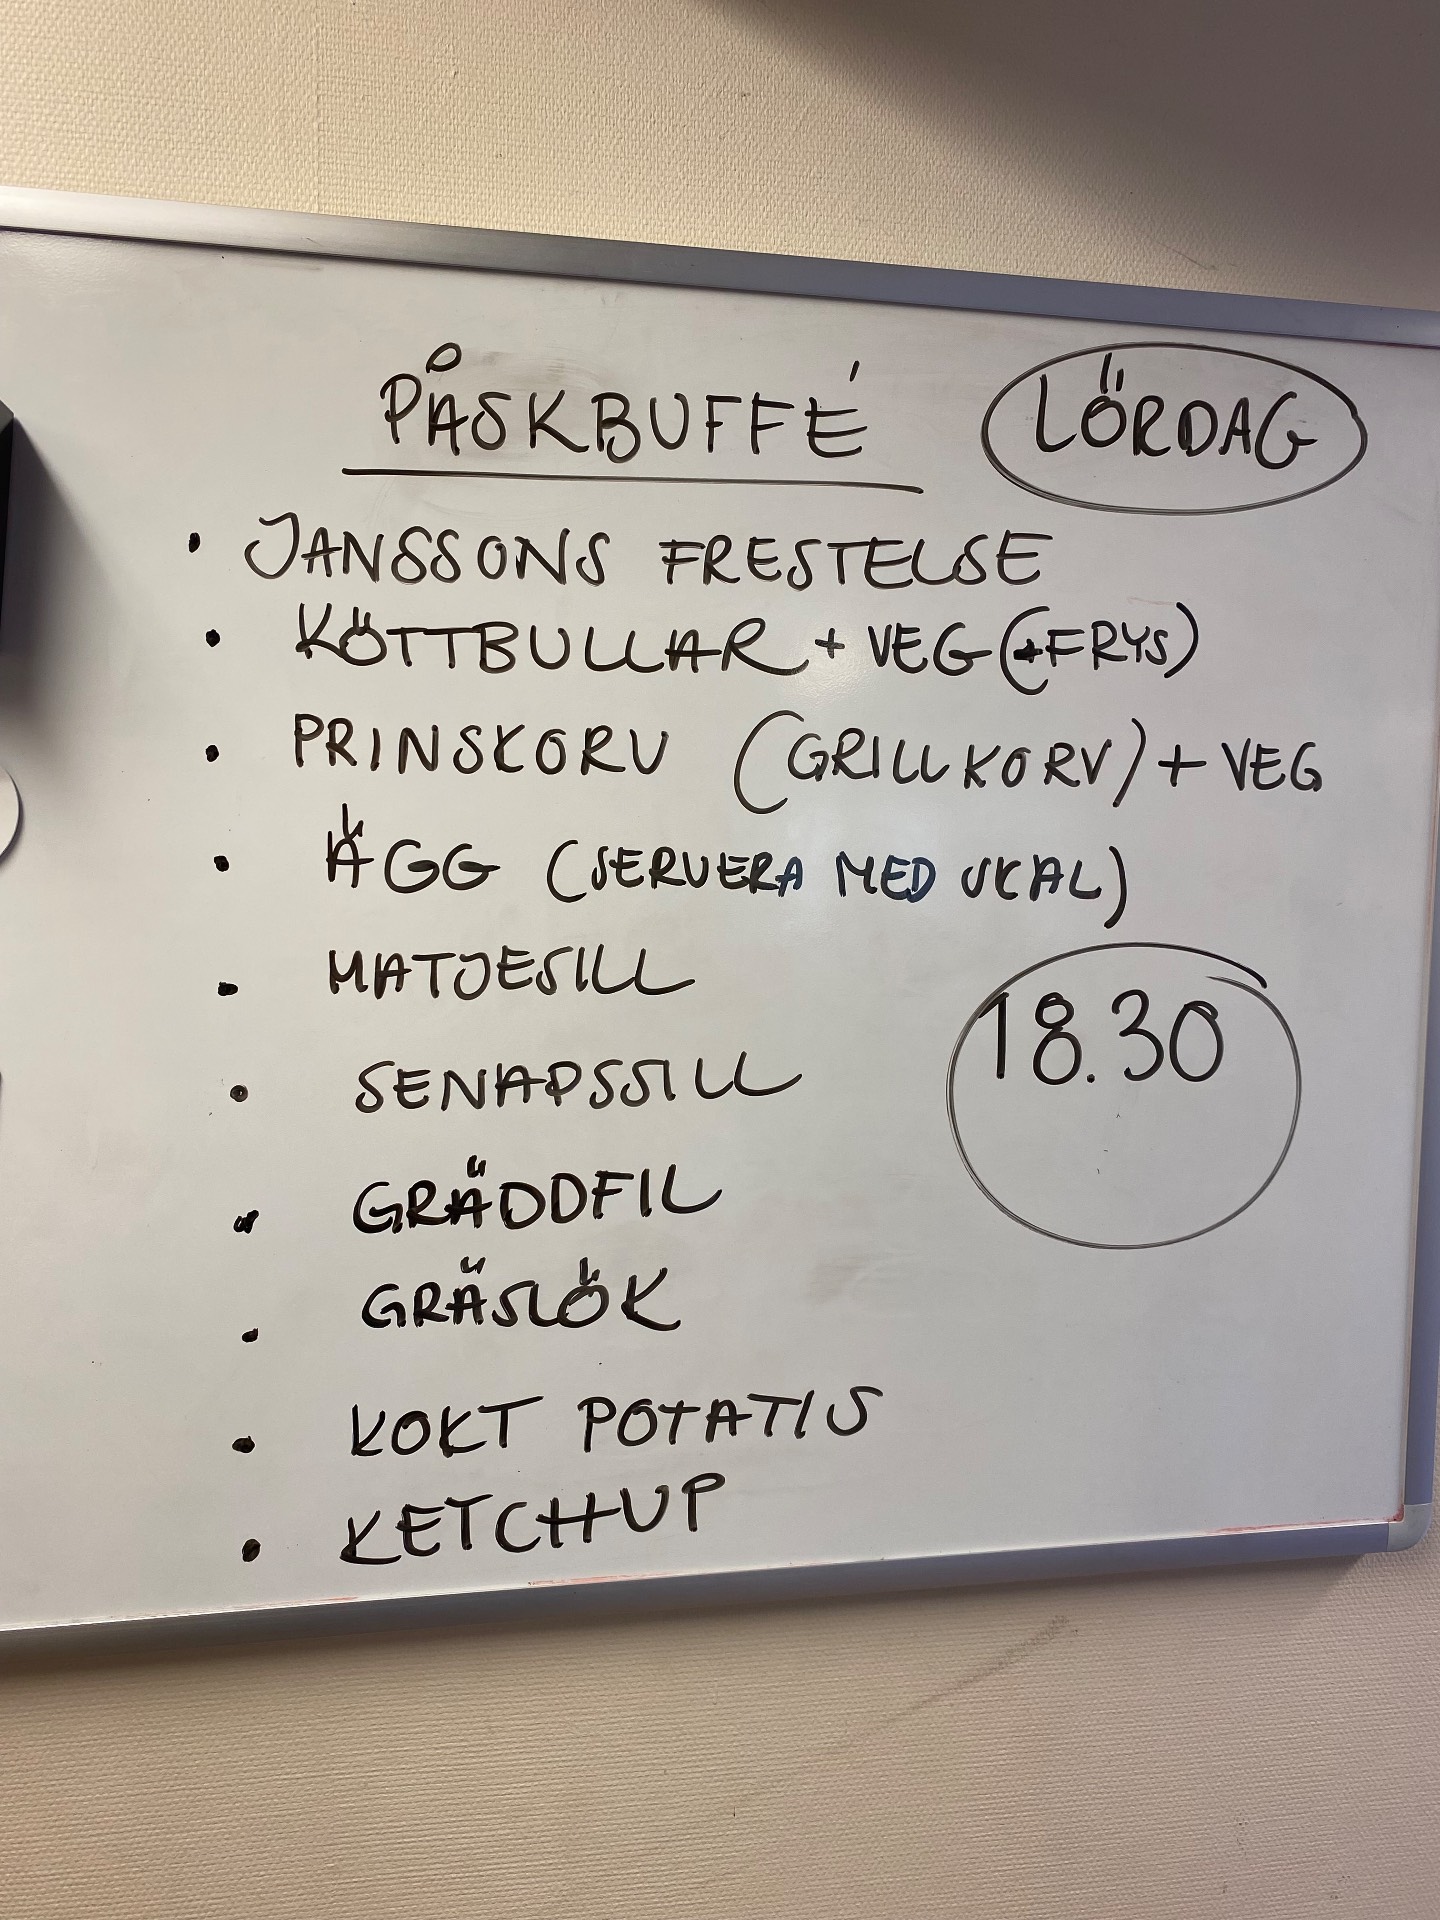 PÅSKBUFFÉ LÖRDAG
• JANSSONS FRESTELSE
• KÖTTBULLAR + VEG (+FRYS)
• PRINSKORV (GRILLKORV) + VEG
• ÄGG (SERVERA MED SKAL)
• MATJESILL
18.30
• SENAPSSILL
• GRÄDDFIL
• GRÄSLÖK
• KOKT POTATIS
• KETCHUP